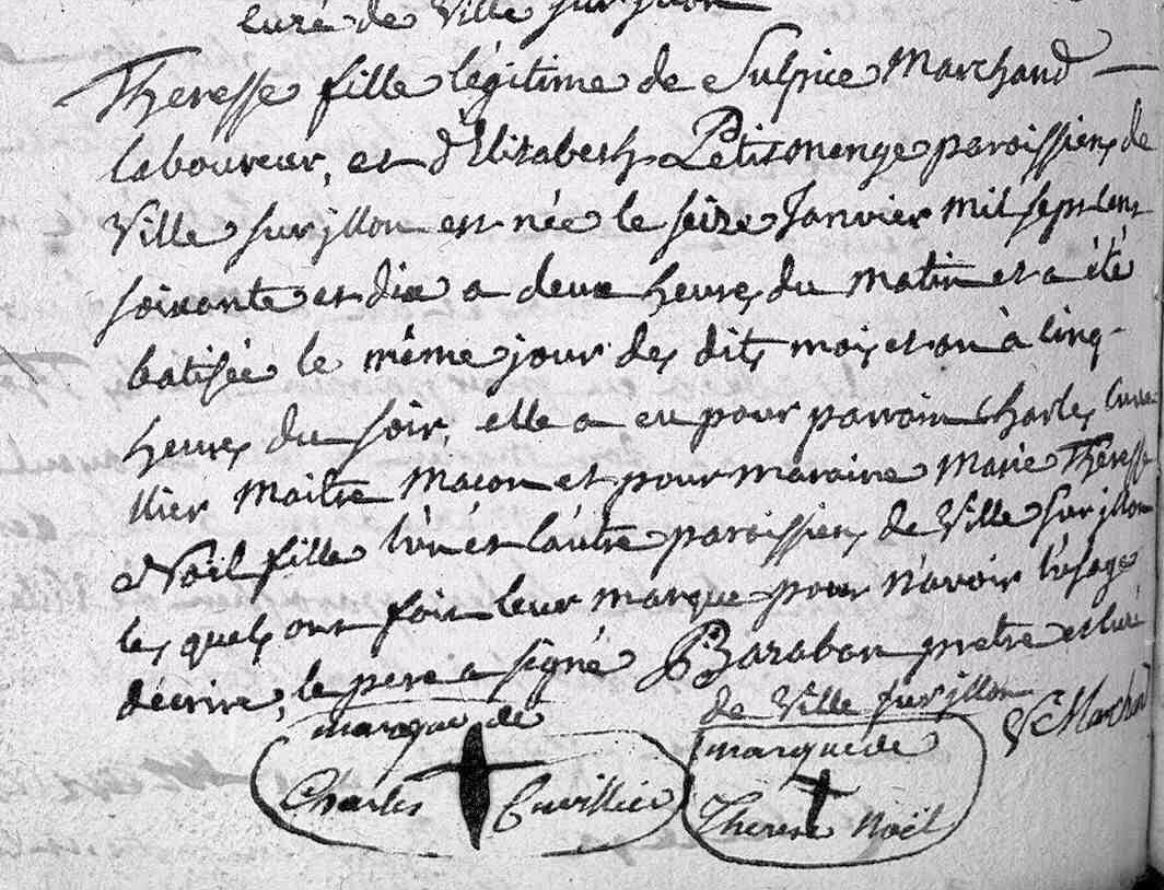 curé de Ville sur jllon
Theresse fille légitime de Sulpice Marchand
laboureur, et d'Elizabeth Petitmenge paroissiens de
Ville sur jllon est née le seize Janvier mil sept cent
soixante et dix a deux heures du matin et a été
batisée le même jour des dits mois et an à cinq
heures du soir, elle a eu pour parrain Charles Cuvi
llier maitre macon et pour maraine Marie Théresse
Noël fille l'un et l'autre paroissiens de Ville sur jllon
les quels ont fait leur marque pour n'avoir l'usage
décrire, le pere a signé Baraban pretre et curé
de Ville sur jllon
S Marchand
marque de
Charles Cuvillier
marque de
Therese Noël